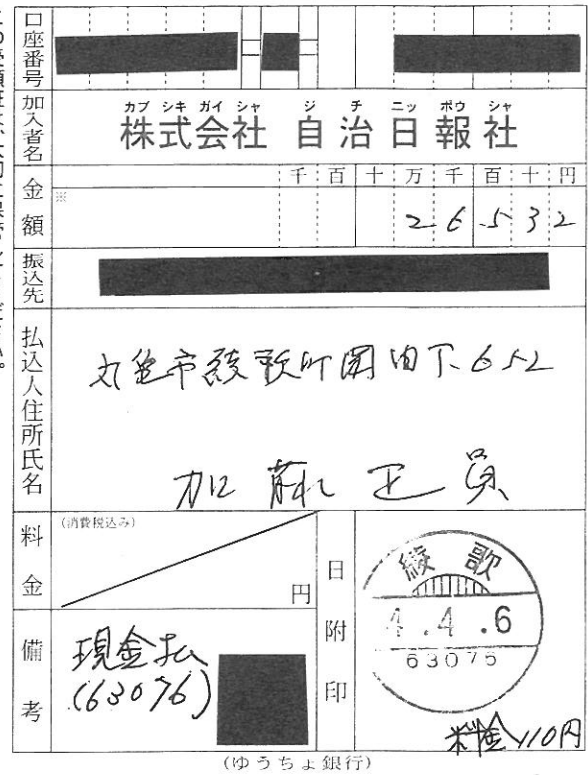 口座番号
加入者名
カブ シキ ガイ シャ ジ チ ニッ ポウ シャ
株式会社 自治日報社
金額
千 百 十 万 千 百 十 円
※
2 6 5 3 2
振込先
払込人住所氏名
丸亀市綾歌町岡田下652
加藤正員
料金
(消費税込み)
円
備考
現金払
(63076)
日附印
綾歌
4.4.6
63075
料金110円
(ゆうちょ銀行)